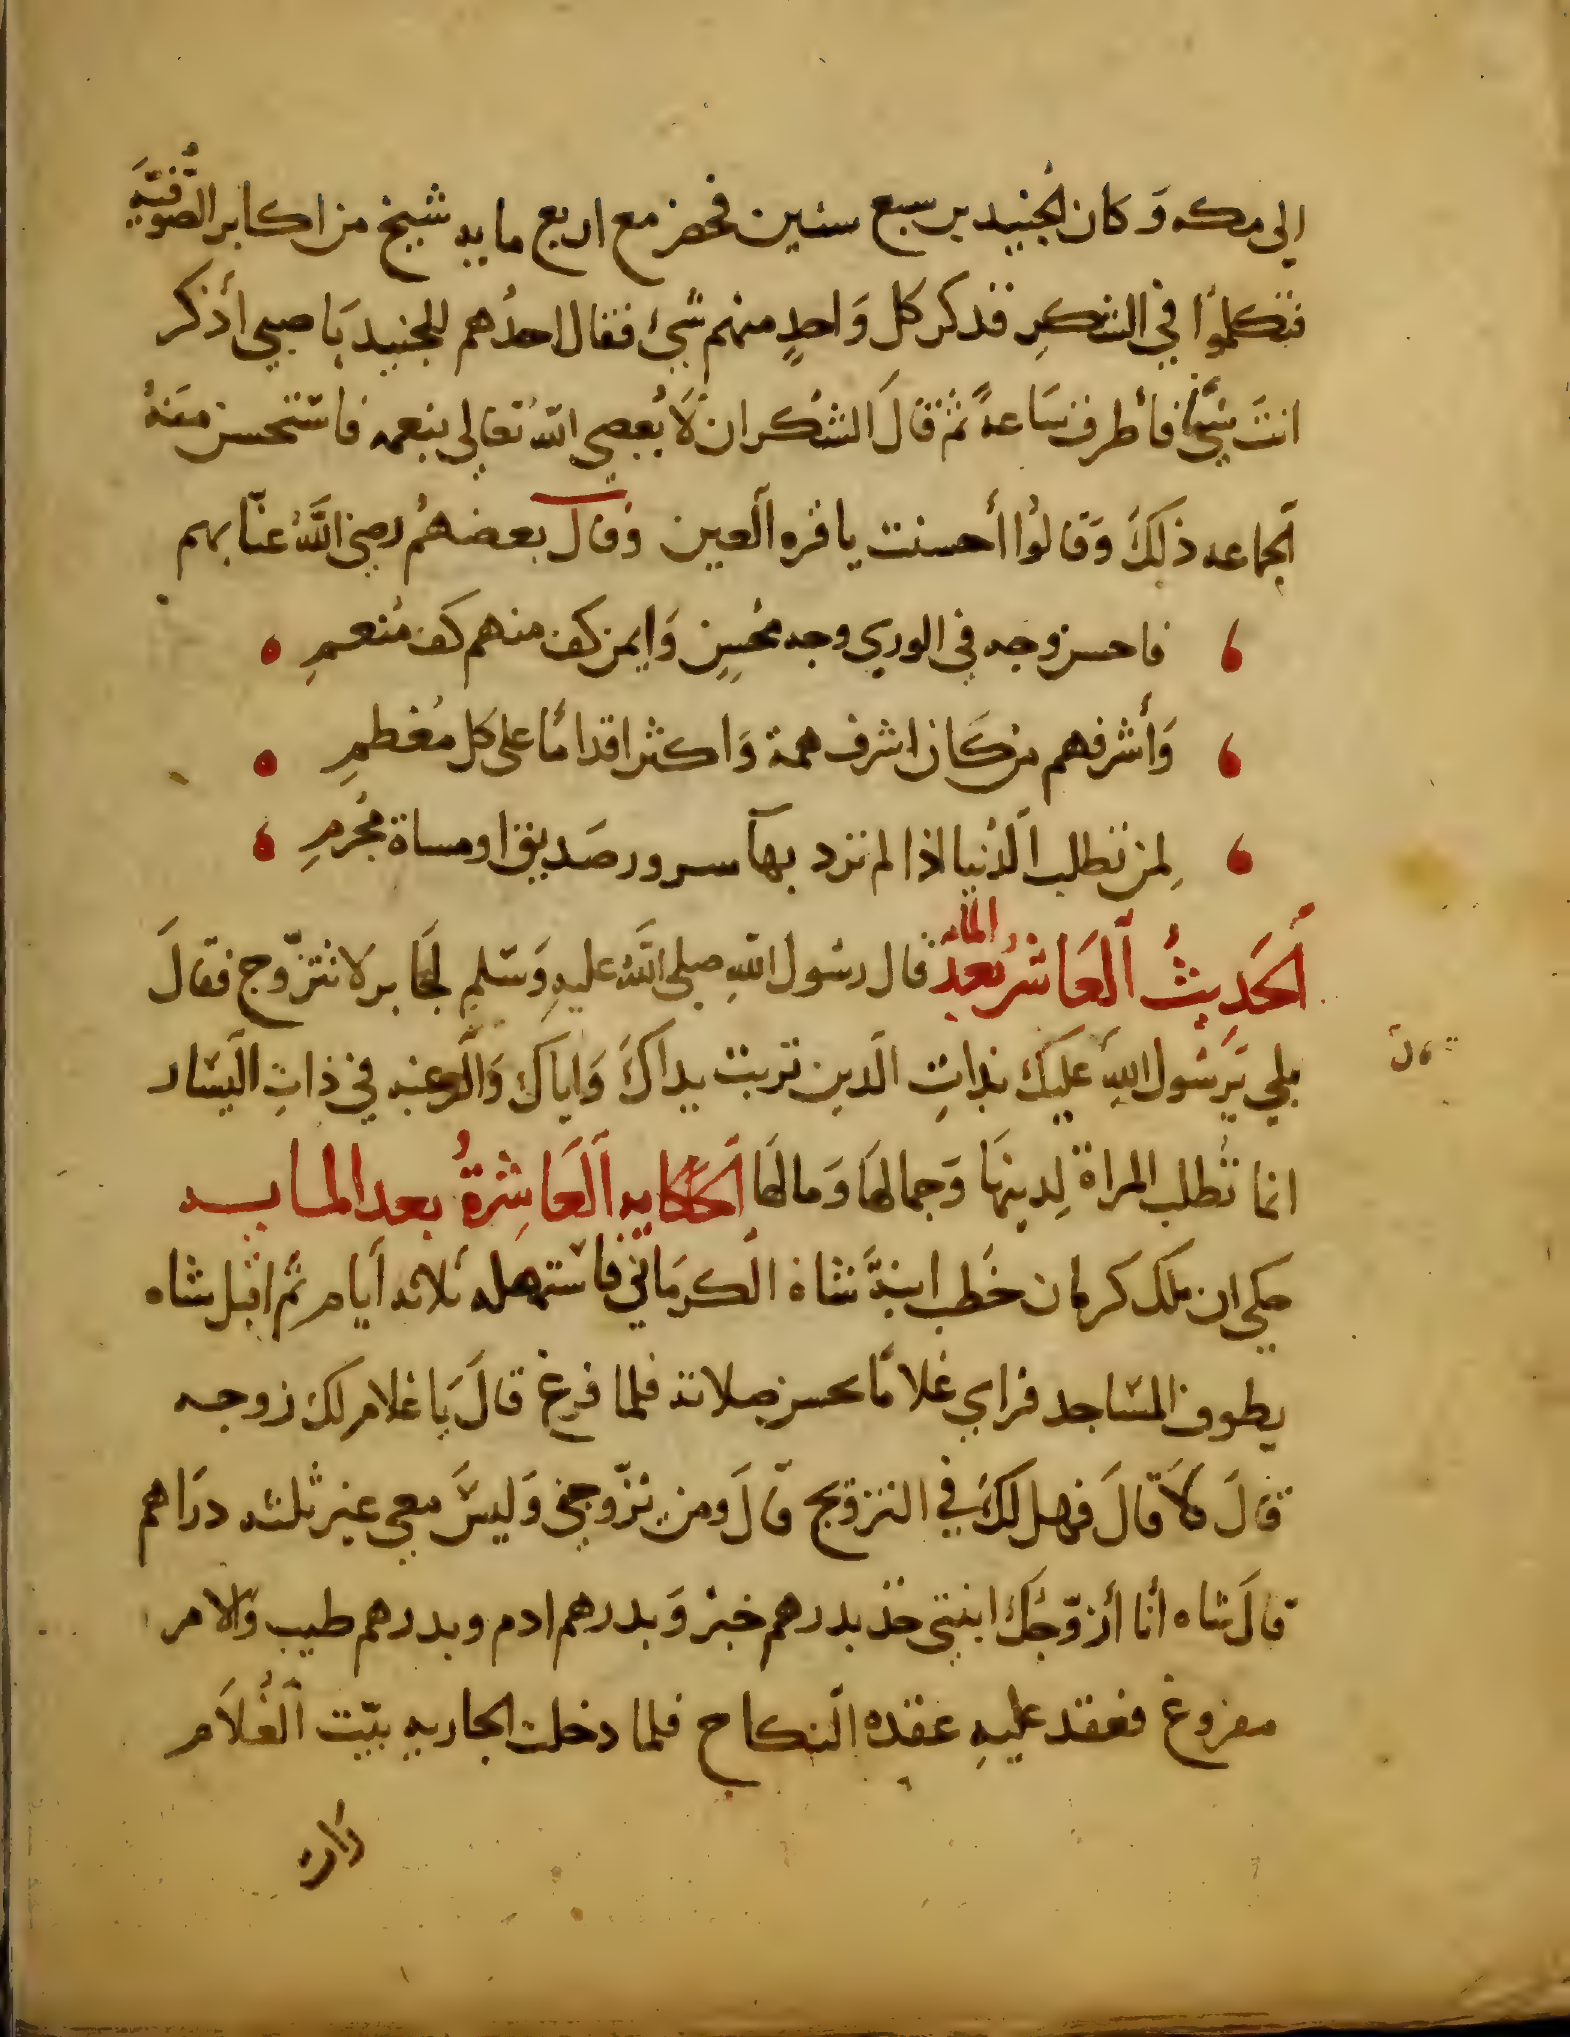 الى مكه وَكان الجُنيد بن سبع سنين فحضر مع اربع مايه شيخ من اكابر الصُّوفيَّه
فتكلموُا في الشكرِ فذكر كل وَاحدٍ منهم شيئ فقال احدُهم للجنيد يَا صبي أذكر
انتَ شيًا فأطرف سَاعةً ثم قالَ الشُكر ان لَا يُعصي اللّه تعَالي بنعمه فاستحسن منهُ
الجماعه ذلكَ وَقالوُا أحسنت يا قره العين وَقال بعضهُم رضي اللَّهُ عنّا بهم
فاحسن وجه في الوري وجه مُحسِنٍ وَايمن كف منهم كف مُنعمِ
وَأشرفهم من كَان اشرف همة وَاكثر اقدامًا على كل مُعظمِ
لِمن تطلب الدُنيا اذا لم ترد بها سرور صَديق او مساة مُجرمِ
الحَديثُ العَاشرُ بعدَ المائه قال رسُول اللّهِ صلى اللَّهُ عليهِ وَسَلم لجَابر لا تتزّوج فقالَ
بلي يَرسُول اللهِ عَليكَ بذاتِ الدين تربت يداكَ وَاياكَ وَالرغبه في ذاتِ اليسَار
انما تُطلب المراة لِدينهَا وَجمالهَا وَمالهَا الحكَايه العَاشِرةُ بعد المايه
حكي ان ملك كرمان خَطب ابنةَ شاة الكرمَاني فاستمهله ثلاثه أيام ثم اقبل شاه
يطوف المسَاجد فراي غلامًا يحسن صلاته فلما فرغ قالَ يَا غلام لك زوجه
قالَ لاَ قالَ فهل لكَ في التزويج قالَ ومن يُزّوجني وَليسَ معي غير ثلثه درَاهم
قالَ شاه أنا أزوّجُكَ ابنتي خذ بدرهم خبز وَبدرهم ادم وبدرهم طيب وَالامر
مفروغ فعقد عليهِ عقده النكاح فلما دخلت الجاريه بيّت الغُلاَم
رَات